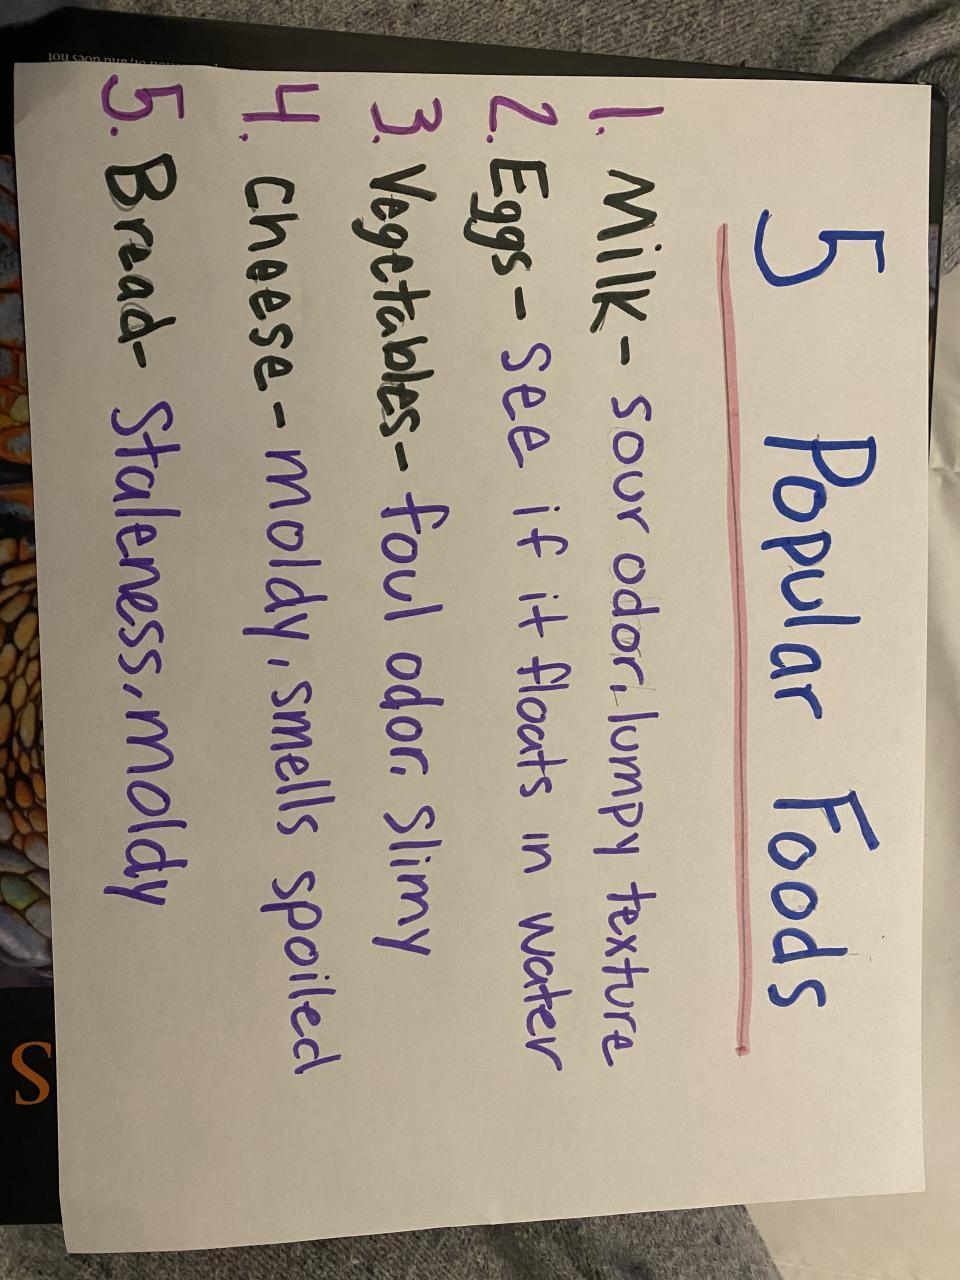 5 Popular Foods
1. Milk- sour odor, lumpy texture
2. Eggs- see if it floats in water
3. Vegetables- foul odor, slimy
4. Cheese- moldy, smells spoiled
5. Bread- Staleness, moldy
and does not
S